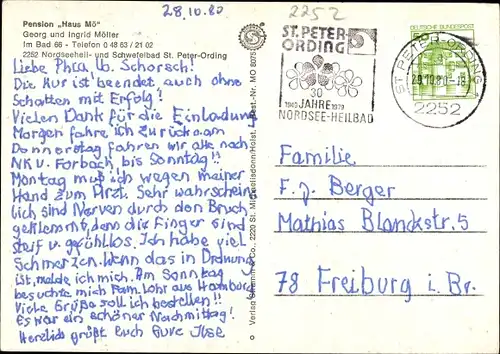 28.10.80
2252
Pension „Haus Mö"
Georg und Ingrid Möller
Im Bad 66 - Telefon 0 48 63 / 21 02
2252 Nordseeheil- und Schwefelbad St. Peter-Ording
Liebe Phia u. Schorsch!
Die Kur ist beendet auch ohne
Schatten mit Erfolg!
Vielen Dank für die Einladung
Morgen fahre ich zurück am
Donnerstag fahren wir alle nach
NK u. Forbach, bis Sonntag!!
Montag muß ich wegen meiner
Hand zum Arzt. Sehr wahrschein
lich sind Nerven durch den Bruch
geklemmt, denn die Finger sind
steif u. gefühllos. Ich habe viel
Schmerzen. Wenn das in Ordnung
ist, melde ich mich. Am Sonntag
besuchte mich Fam. Lohr aus Hamburg
Viele Grüße soll ich bestellen!!
Es war ein schöner Nachmittag!
Herzlich grüßt Euch Eure Ilse
ST. PETER-
ORDING
30
1949 JAHRE 1979
NORDSEE-HEILBAD
ST. PETER-ORDING
29.10.80-18
2252
DEUTSCHE BUNDESPOST
Familie
F. J. Berger
Mathias Blanckstr. 5
78 Freiburg i. Br.